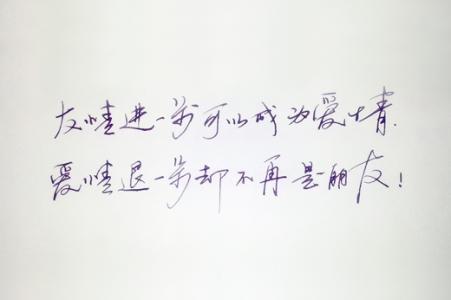 友情进一步可以成为爱情.
爱情退一步却不再是朋友!